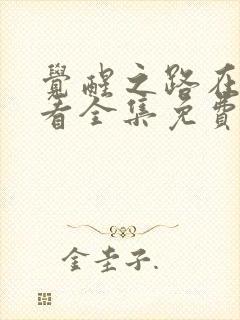 覺醒之路在
看全集免費
金圭子.